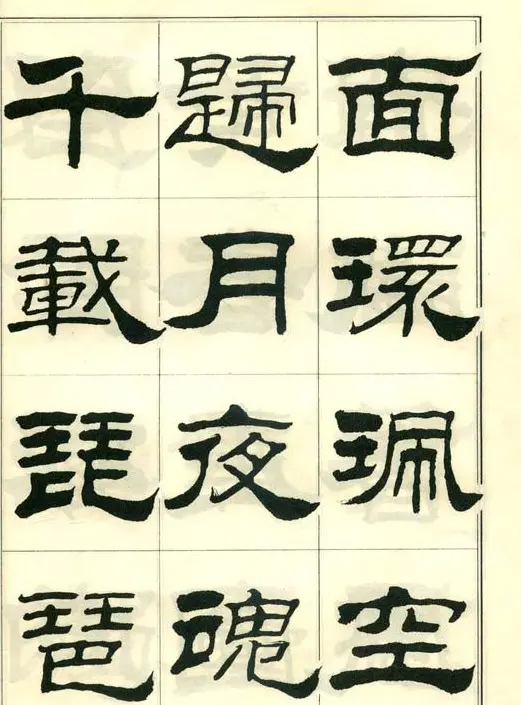 面環珮空
歸月夜魂
千載琵琶